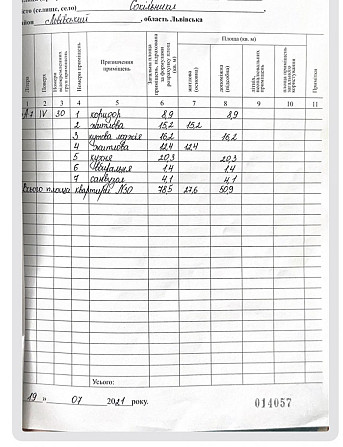 місто (селище, село) Сокільники
район Львівський, область Львівська
Літера Поверх Номери житлових груп приміщень Номери приміщень Призначення приміщень Загальна площа приміщень, підрахована за формулами розрахунку площ (кв. м) Площа (кв. м) житлова (основна) допоміжна (підсобна) приміщень Примітка
1 2 3 4 5 6 7 8 9 10 11
А-1 IV 30 1 коридор 8,9 8,9
2 житлова 15,2 15,2
3 кухова лоджія 16,2 16,2
4 житлова 12,4 12,4
5 кухня 20,3 20,3
6 вбиральня 1,4 1,4
7 санвузол 4,1 4,1
Всього площа квартири №30 78,5 27,6 50,9
Усього:
19 » 07 2021 року.
014057